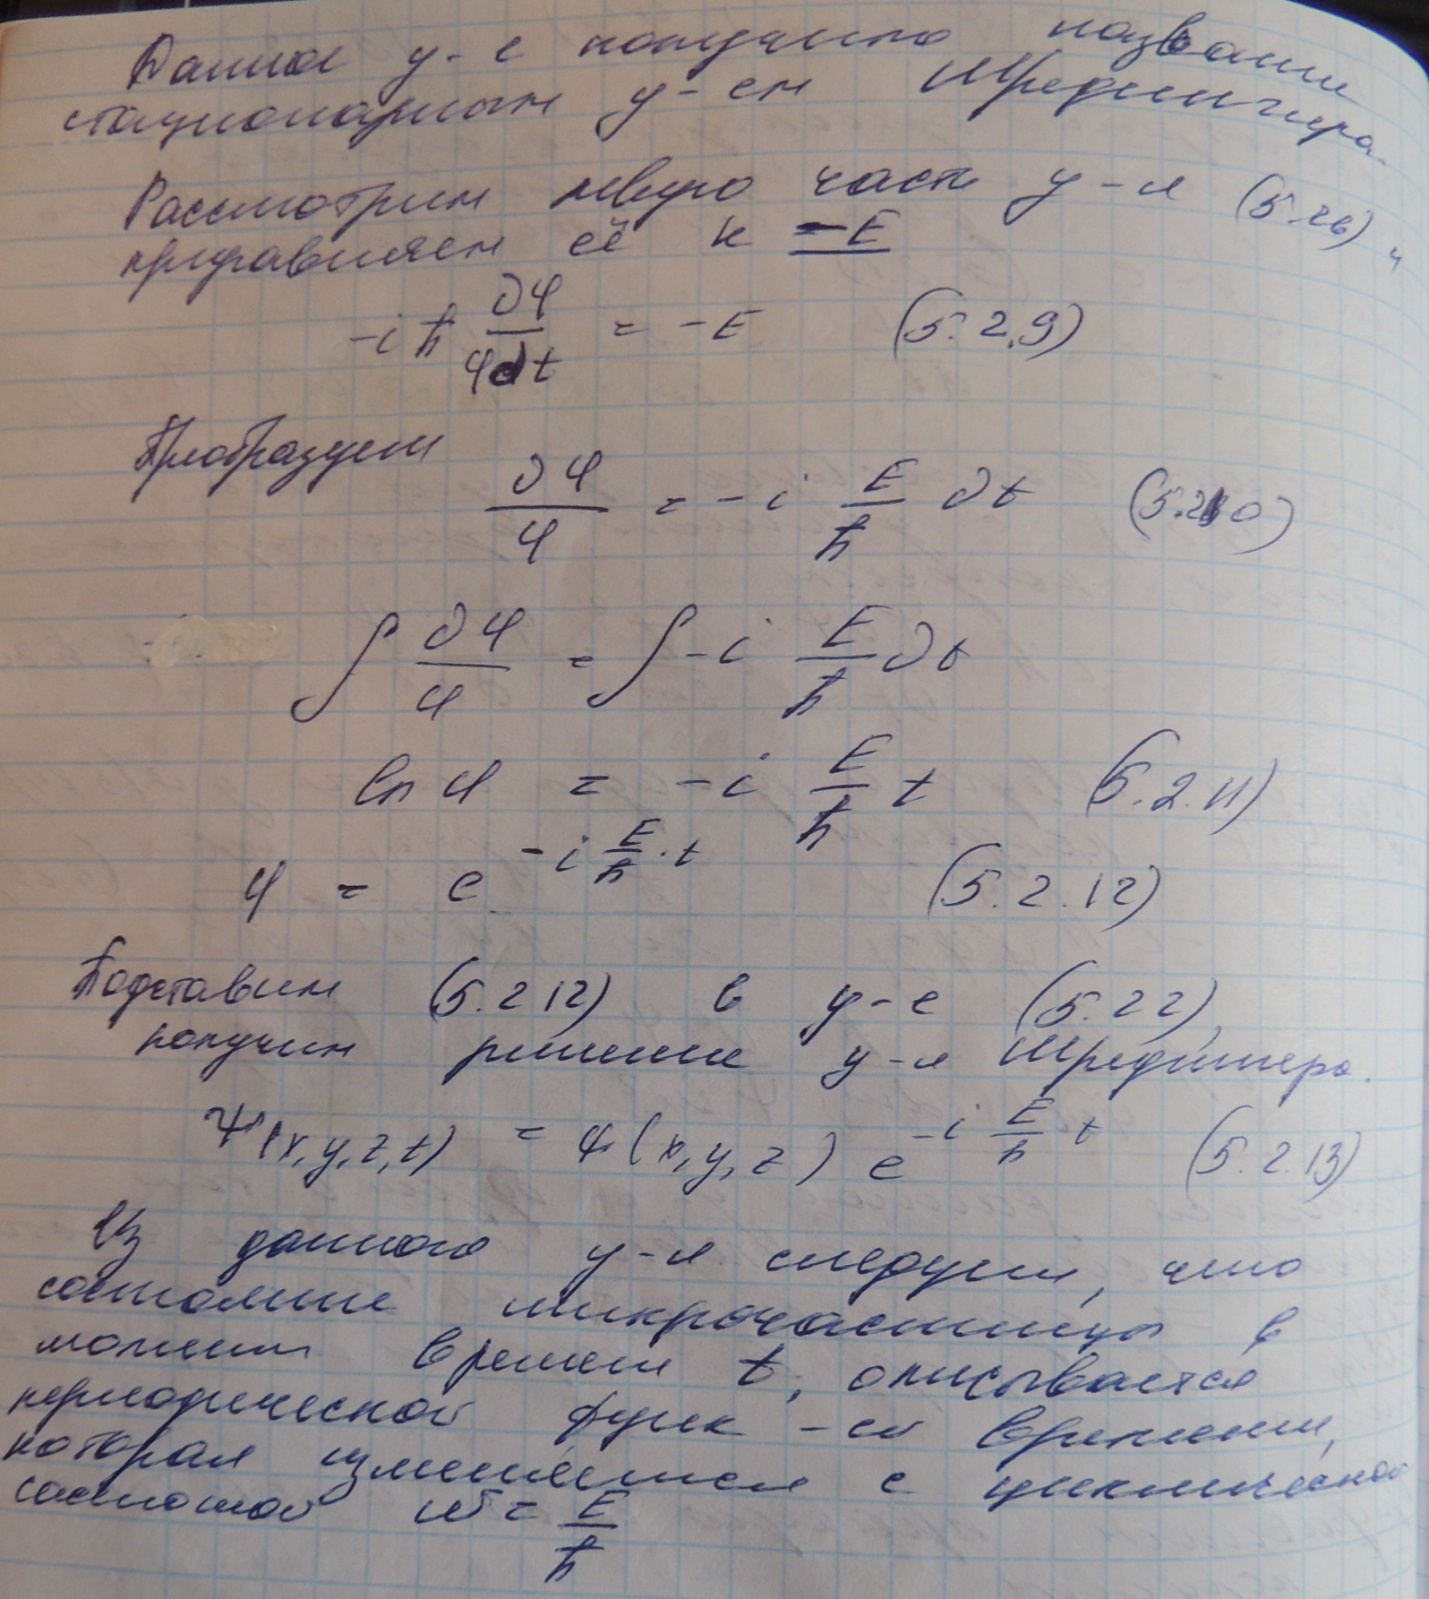 Данное у-е получило название
стационарным у-ем Шредингера.
Рассмотрим левую часть у-я (5.26) и
приравняем её к -E
-iħ ∂φ/φ∂t = -E (5.2.9)
Преобразуем
∂φ/φ = -i E/ħ ∂t (5.210)
∫ ∂φ/φ = ∫ -i E/ħ ∂t
ln φ = -i E/ħ t (5.2.11)
φ = e^(-i E/ħ · t) (5.2.12)
Подставим (5.2 12) в у-е (5.22),
получим решение у-я Шредингера.
Ψ(x,y,z,t) = ψ(x,y,z) e^(-i E/ħ t) (5.2.13)
Из данного у-я следует, что
состояние микрочастицы в
момент времени t, описывается
периодической функ-ей времени,
которая изменяется с циклической
частотой ω = E/ħ